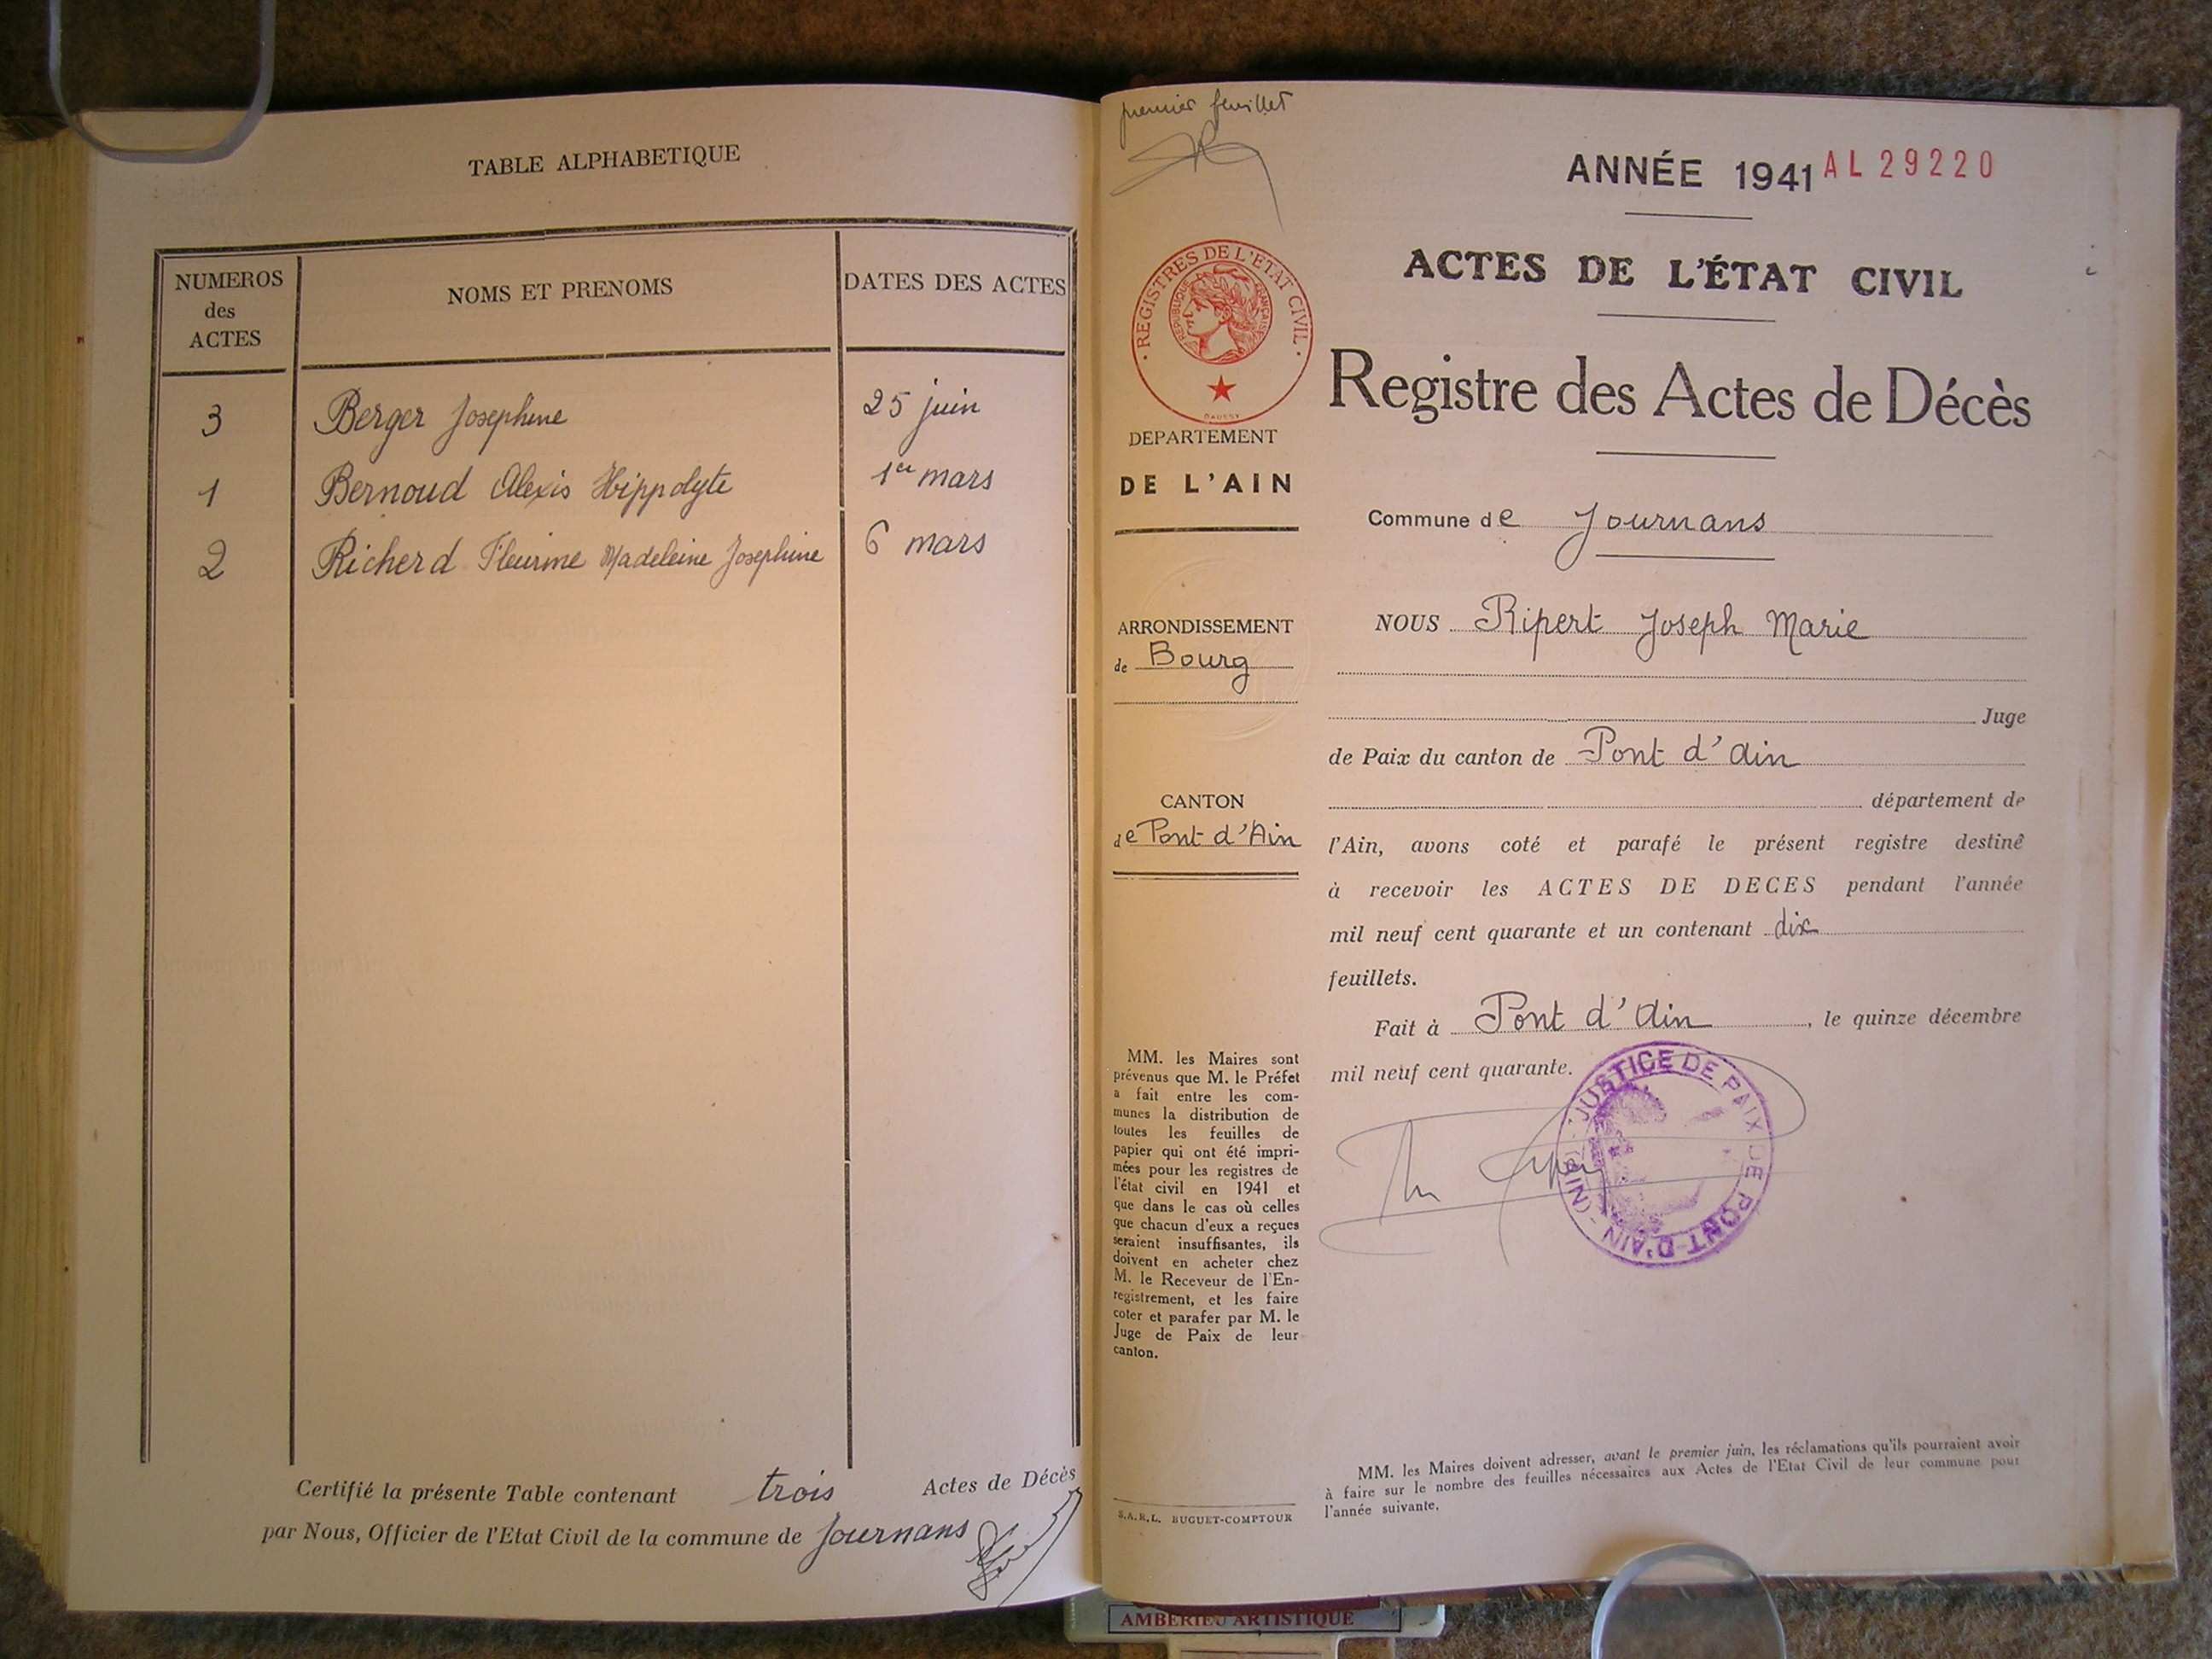 TABLE ALPHABETIQUE
NUMEROS
des
ACTES
NOMS ET PRENOMS
DATES DES ACTES
3 Berger Josephine 25 juin
1 Bernoud Alexis Hippolyte 1er mars
2 Richerd Fleurine Madeleine Josephine 6 mars
Certifié la présente Table contenant trois Actes de Décès
par Nous, Officier de l'Etat Civil de la commune de Journans
premier feuillet
ANNÉE 1941 AL 29220
REGISTRES DE L'ETAT CIVIL
REPUBLIQUE FRANÇAISE
ACTES DE L'ÉTAT CIVIL
Registre des Actes de Décès
DEPARTEMENT
DE L'AIN
Commune de Journans
ARRONDISSEMENT
de Bourg
CANTON
de Pont d'Ain
NOUS Ripert Joseph Marie
Juge
de Paix du canton de Pont d'Ain
département de
l'Ain, avons coté et parafé le présent registre destiné
à recevoir les ACTES DE DECES pendant l'année
mil neuf cent quarante et un contenant dix
feuillets.
Fait à Pont d'Ain, le quinze décembre
mil neuf cent quarante.
JUSTICE DE PAIX DE PONT-D'AIN - (AIN) -
MM. les Maires sont
prévenus que M. le Préfet
a fait entre les com-
munes la distribution de
toutes les feuilles de
papier qui ont été impri-
mées pour les registres de
l'état civil en 1941 et
que dans le cas où celles
que chacun d'eux a reçues
seraient insuffisantes, ils
doivent en acheter chez
M. le Receveur de l'En-
registrement, et les faire
coter et parafer par M. le
Juge de Paix de leur
canton.
S.A.R.L. BUGUET-COMPTOUR
MM. les Maires doivent adresser, avant le premier juin, les réclamations qu'ils pourraient avoir
à faire sur le nombre des feuilles nécessaires aux Actes de l'Etat Civil de leur commune pour
l'année suivante.
AMBERIEU ARTISTIQUE